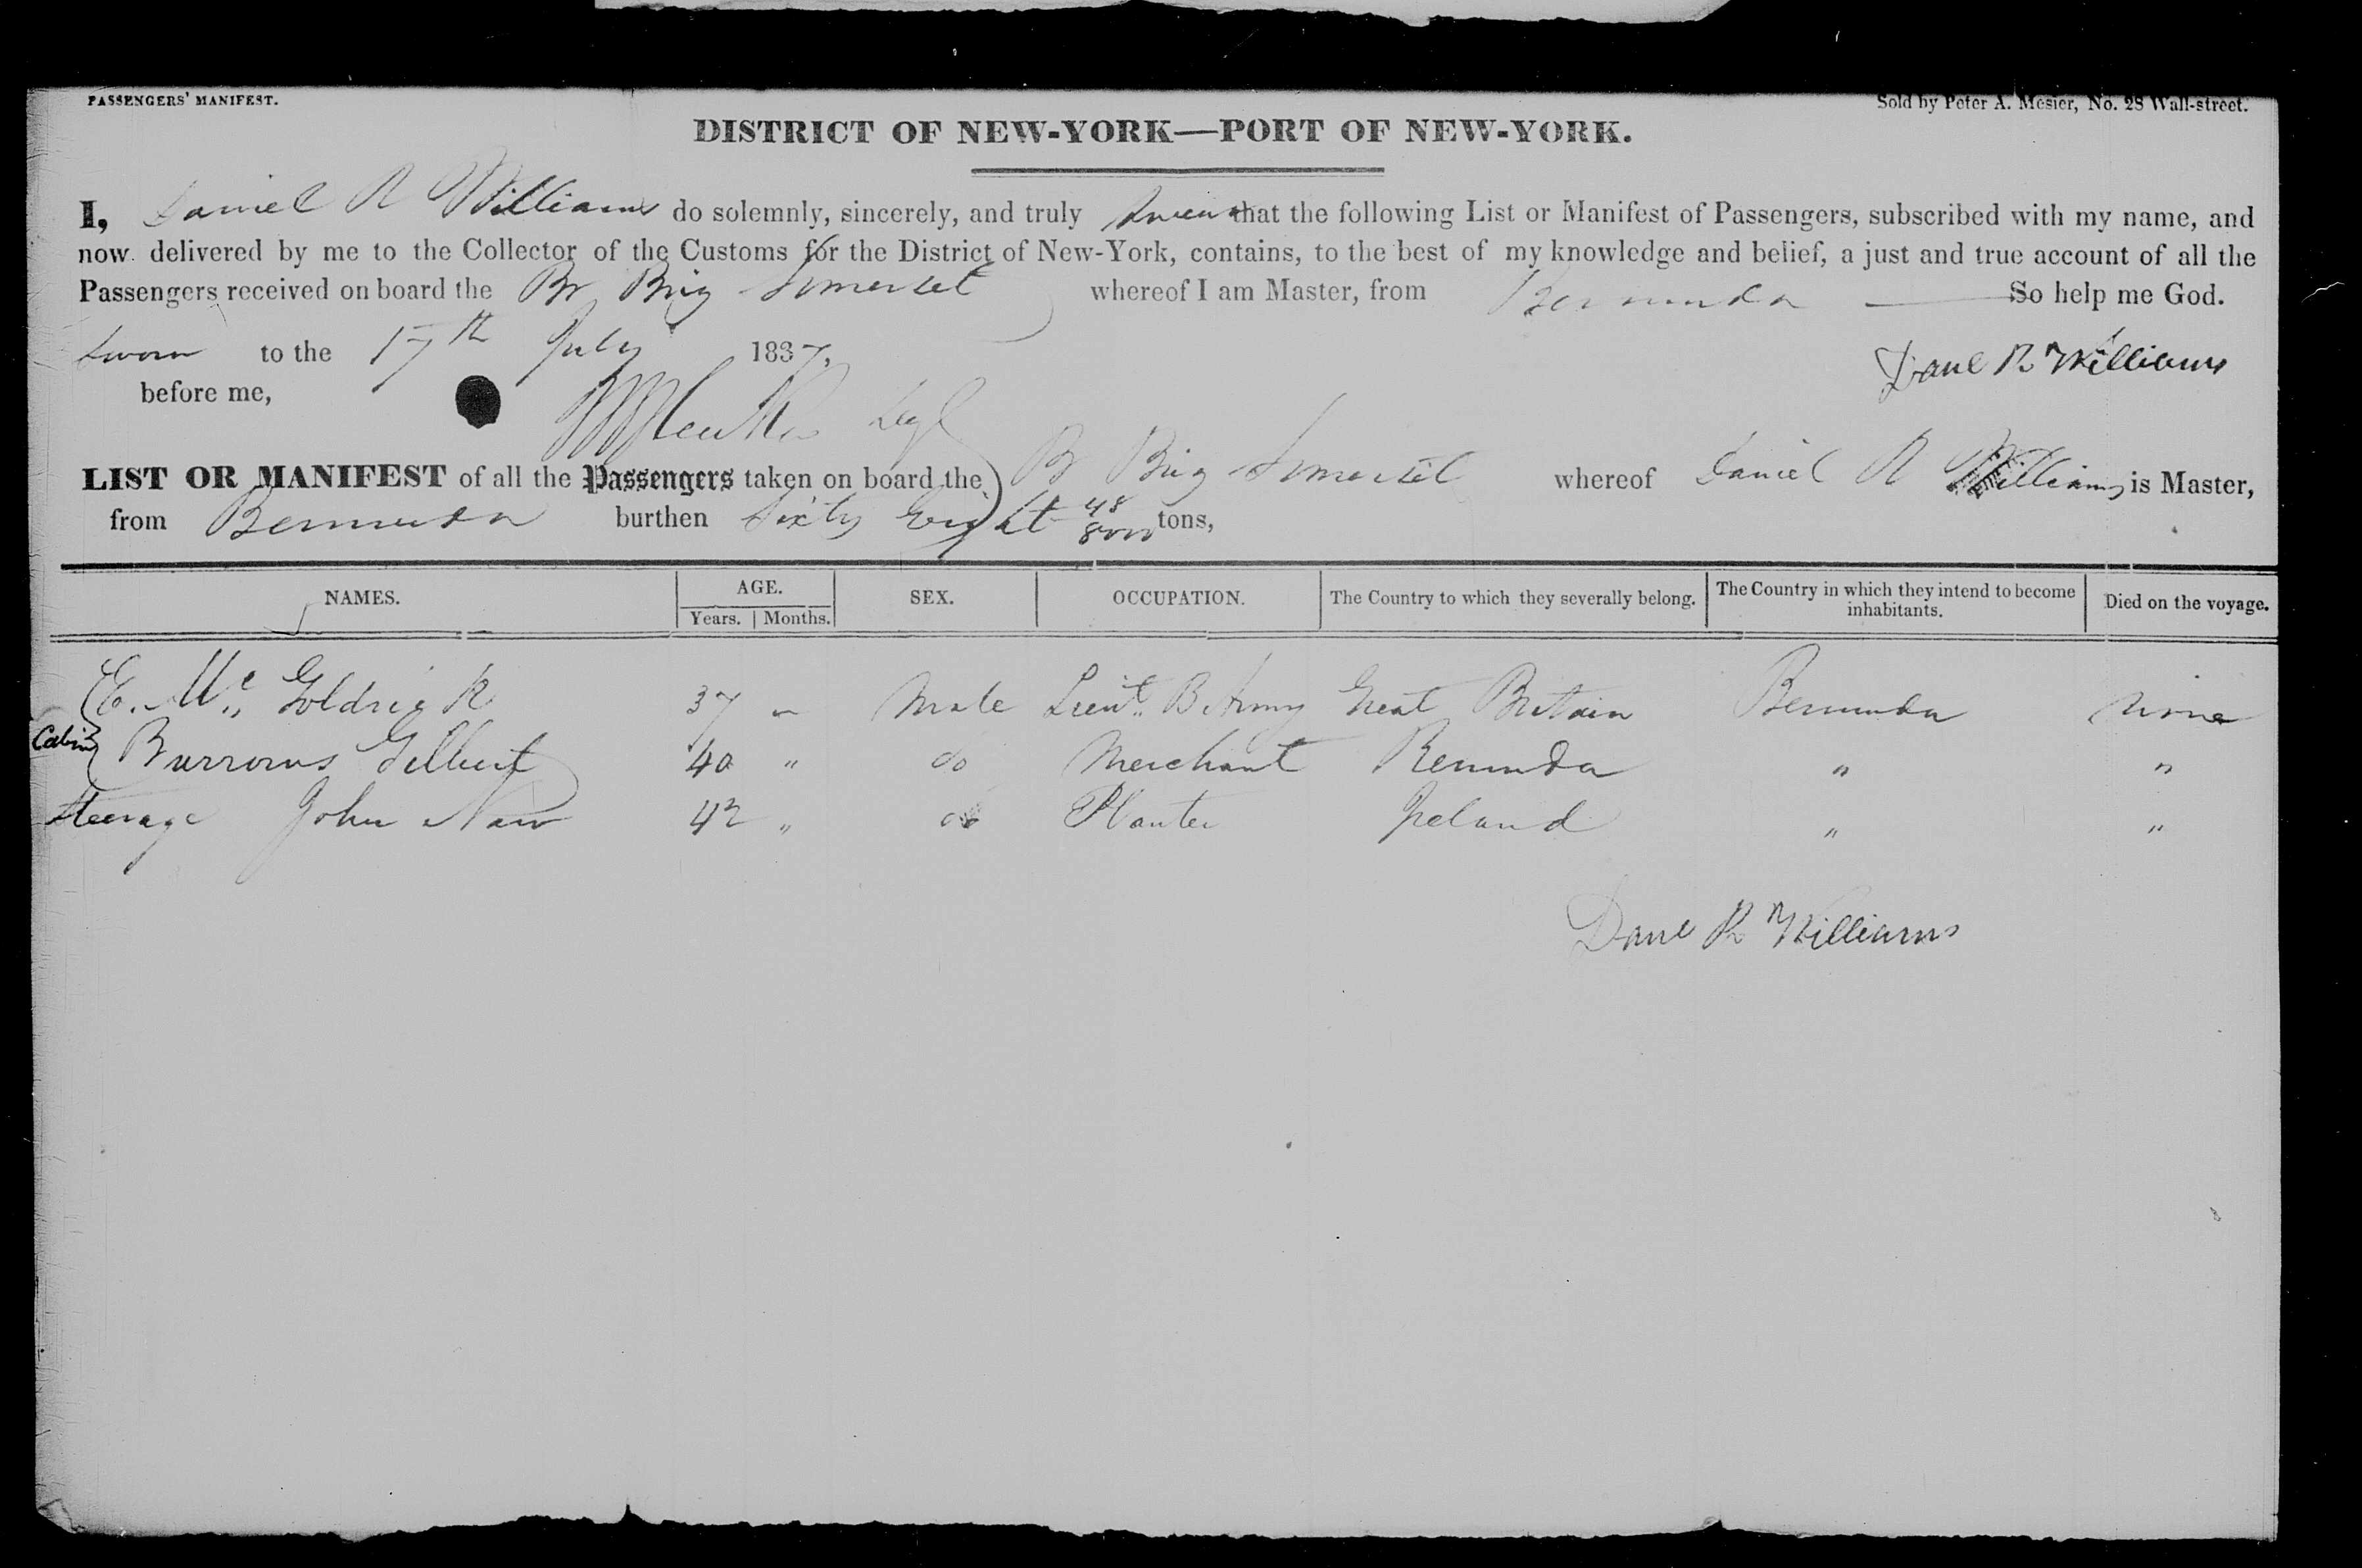 PASSENGERS' MANIFEST.
Sold by Peter A. Mesier, No. 28 Wall-street.
DISTRICT OF NEW-YORK—PORT OF NEW-YORK.
I, Daniel R Williams do solemnly, sincerely, and truly swear that the following List or Manifest of Passengers, subscribed with my name, and
now delivered by me to the Collector of the Customs for the District of New-York, contains, to the best of my knowledge and belief, a just and true account of all the
Passengers received on board the Br Brig Somerset whereof I am Master, from Bermuda So help me God.
Sworn to the 17th July 1837.
Danl R Williams
before me,
LIST OR MANIFEST of all the Passengers taken on board the B Brig Somerset whereof Daniel R Williams is Master,
from Bermuda burthen Sixty Eight 48 tons,
NAMES. AGE. SEX. OCCUPATION. The Country to which they severally belong. The Country in which they intend to become inhabitants. Died on the voyage.
Years. Months.
E. Mc Goldrick 37 " Male Lieut. B Army Great Britain Bermuda None
Cabin Burrows Gilbert 40 " do Merchant Bermuda " "
Steerage John Naw 42 " do Planter Ireland " "
Danl R Williams